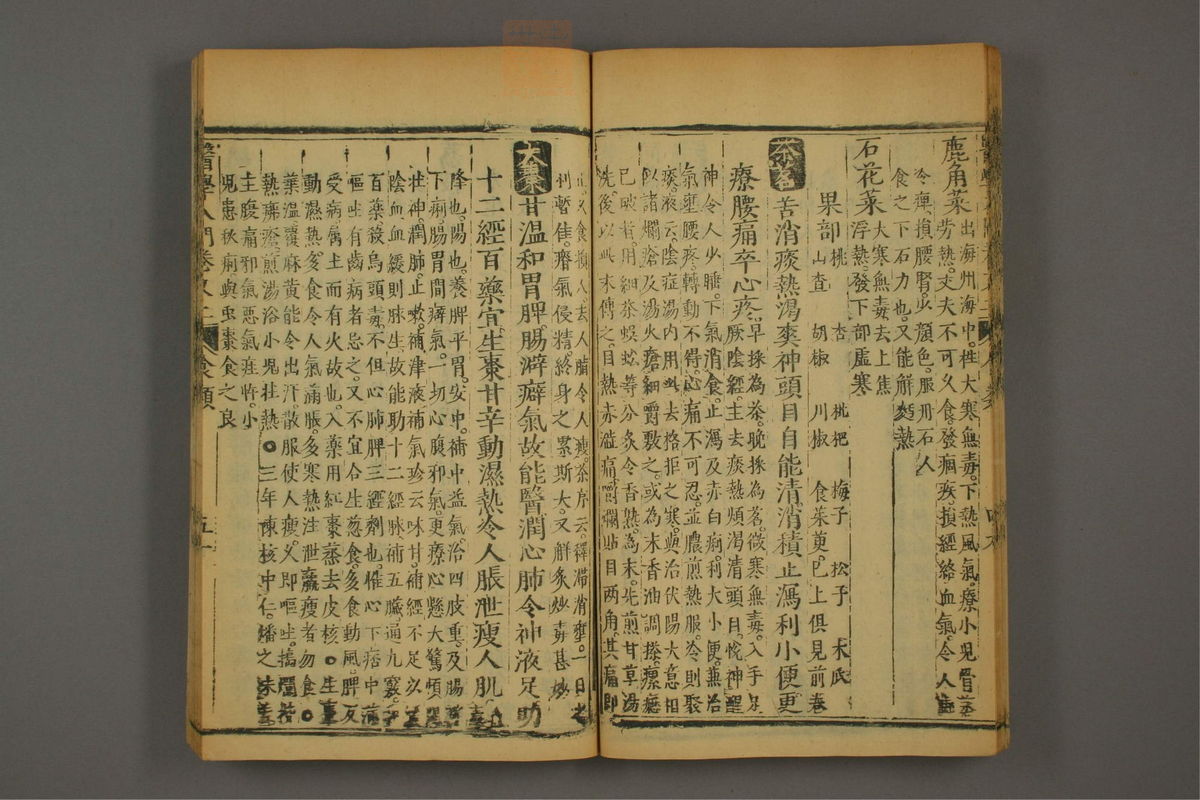 鹿角菜出海州海中。性大寒無毒。下熱風氣。療小兒骨蒸
勞熱。丈夫不可久食。發痼疾。損經絡血氣。令人
冷痹。損腰腎。少顏色。服丹石人
食之下石力也。又能解麪熱
石花菜大寒無毒。去上焦
浮熱。發下部虛寒
果部桃 杏 枇杷 梅子 松子 木瓜
山查 胡椒 川椒 食茱萸。已上俱見前卷
茶茗苦消痰熱渴爽神頭目自能清消積止瀉利小便更
療腰痛卒心疼早採為茶。晚採為茗。微寒無毒。入手足
厥陰經。主去痰熱煩渴清頭目。悅神醒
神令人少睡。下氣消食。止瀉及赤白痢。利大小便。兼治
氣壅腰疼。轉動不得。心痛不可忍。並膿煎熱服。冷則聚
痰。液云。陰症湯內用此去格拒之寒。與治伏陽大意相
似諸爛瘡及湯火瘡。細嚼敷之。或為末香油調搽。瘰癧
已破者。用細茶蜈蚣等分。炙令香熟。為末。先煎甘草湯
洗。後以此末傅之。目熱赤澁痛。嚼爛貼目兩角。其痛即
人去人脂令人瘦。茶序云。釋滯消壅。一日之
利暫佳。瘠氣侵精。終身之累斯大。又解炙炒毒甚妙
大棗甘温和胃脾。腸澼癖氣故能醫。潤心肺令神液足助
十二經百藥宜。生棗甘辛動濕熱。令人脹泄瘦人肌
降也。陽也。養脾平胃。安中。補中益氣。治四肢重及腸
下痢腸胃間癖氣。一切心腹邪氣。更療心懸大驚煩
壯神潤肺。止嗽。補津液補氣。珍云味甘。補經不足以
陰血血緩則脉生。故能助十二經脉。補五臟。通九竅。和
百藥。殺烏頭毒。不但心肺脾三經劑也。惟心下痞中滿
嘔吐有齒病者忌之。又不宜合生葱食。多食動風。脾反
受病。属土而有火故也。入藥用紅棗蒸去皮核。生棗
動濕熱。多食令人氣滿脹。多寒熱注泄羸瘦者勿食。
葉温覆麻黃能令出汗散服使人瘦久即嘔吐。擣
熱痱瘡。煎湯浴小兒壯熱。三年陳核中仁。燔之
主腹痛邪氣惡氣疰忤。小
兒患秋痢與虫棗食之良
醫學入門卷 食類 五十一